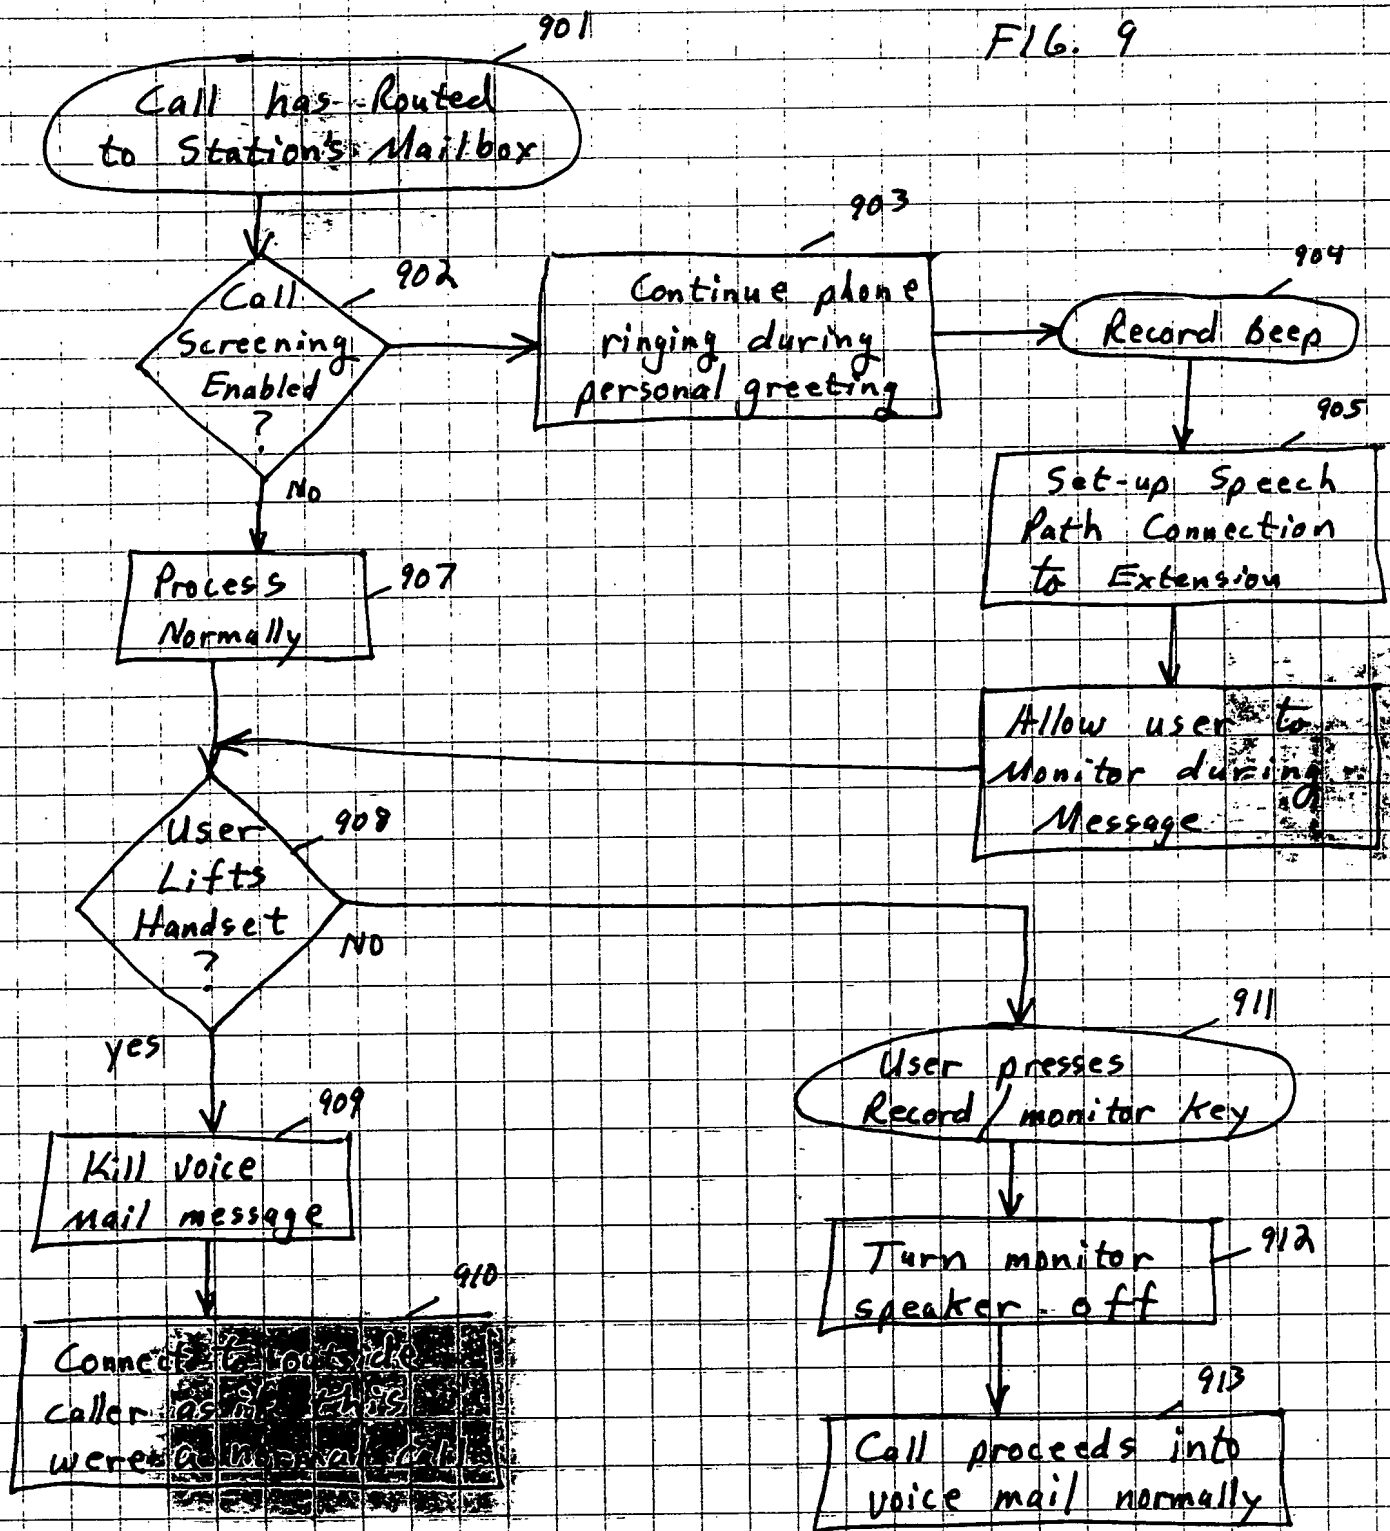 FIG. 9
901
Call has Routed
to Station's Mailbox
902
Call
Screening
Enabled
?
No
903
Continue phone
ringing during
personal greeting
904
Record Beep
905
Set-up Speech
Path Connection
to Extension
Allow user to
Monitor during
Message
907
Process
Normally
908
User
Lifts
Handset
?
NO
yes
909
Kill voice
mail message
910
Connect to outside
caller as if this
were a normal call
911
User presses
Record / monitor key
912
Turn monitor
speaker off
913
Call proceeds into
voice mail normally